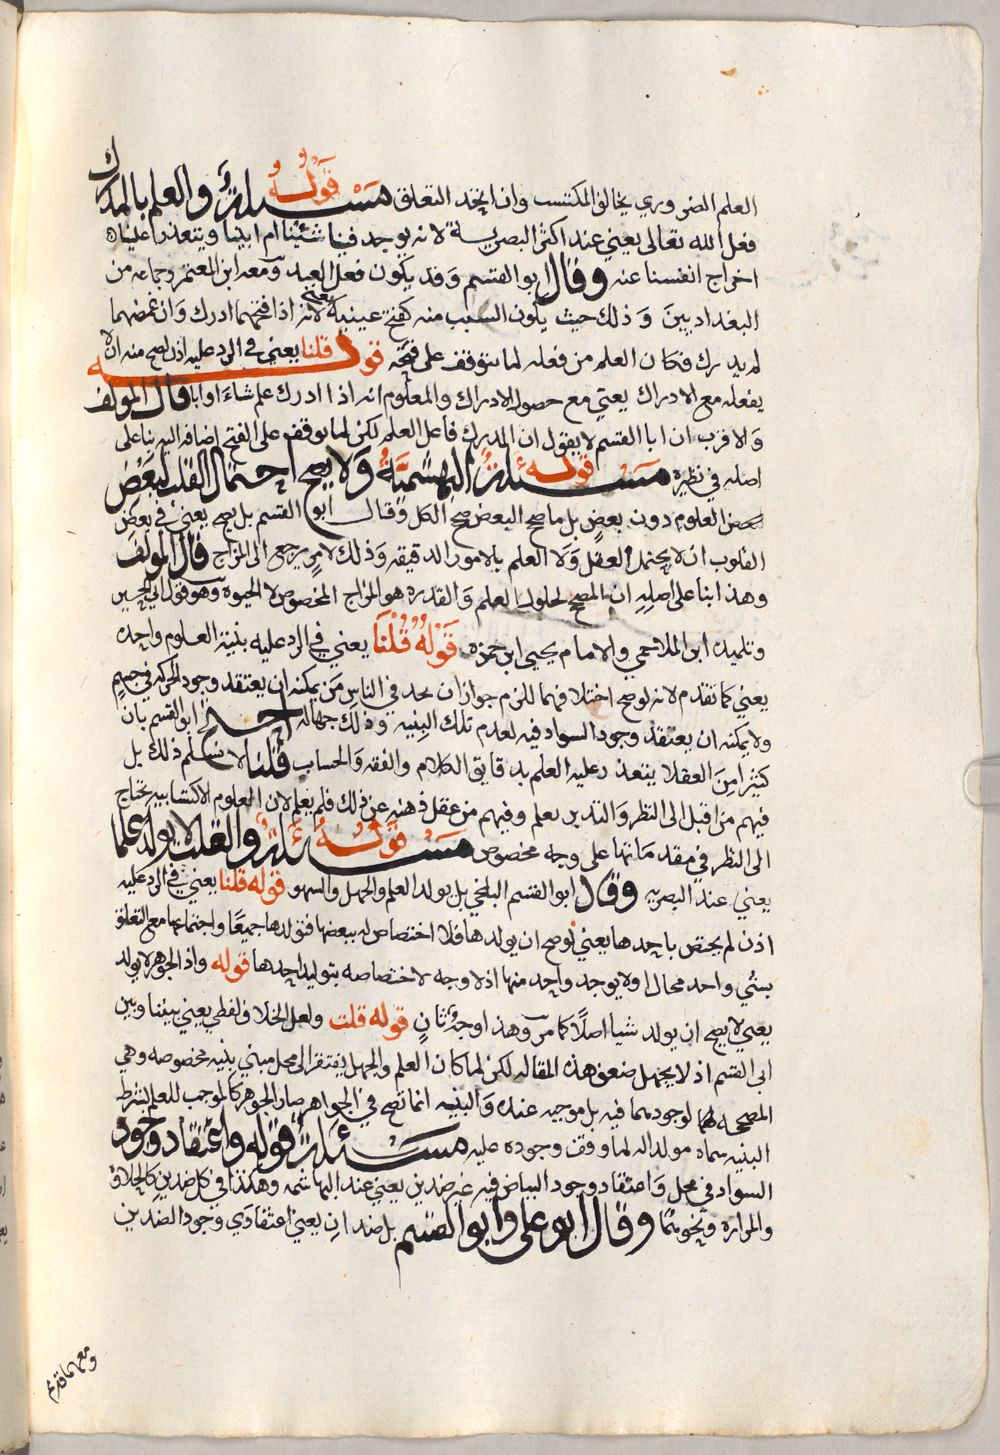 العلم الضروري يخالف المكتسب وان اتحد التعلق مسئلة قوله والعلم بالمدرك
فعل الله تعالى يعني عند اكثر البصرية لانه يوجد فينا شئنا ام ابينا ويتعذر علينا
اخراج انفسنا عنه وقال ابو القسم وقد يكون فعل العبد ومعه ابن المعتمر وجماعه من
البغداديين وذلك حيث يكون السبب منه كفتح عينيه يعني لانه اذا فتحهما ادرك وان غمضهما
لم يدرك فكان العلم من فعله لما توقف على فتحه قوله قلنا يعني في الرد عليه اذن لصح منه ان لا
يفعله مع الادراك يعني مع حصول الادراك والمعلوم انه اذا ادرك علم شاء او ابا قال المولف
والاقرب ان ابا القسم لا يقول ان المدرك فاعل العلم لكن لما توقف على الفتح اضافه اليه بنا على
اصله في نظيره مسئلة قوله البهشمية ولا يصح احتمال القلب لبعض
بعض العلوم دون بعض بل ما صح البعض صح الكل وقال ابو القسم بل يصح يعني في بعض
القلوب ان لا يحتمل العقل ولا العلم بالامور الدقيقه وذلك لامر يرجع الى المزاج قال المولف
وهذا بنا على اصله ان المصحح لحلول العلم والقدره هو المزاج المخصوص لا الحيوه وهو قول ابي الحسين
وتلميذه ابن الملاحمي والامام يحيى ابن حمزه قوله قلنا يعني في الرد عليه بنية العلوم واحده
يعني كما تقدم لانه لو صح اختلافهما للزم جواز ان نجد في الناس من يمكنه ان يعتقد وجود الحركه في جسم
ولا يمكنه ان يعتقد وجود السواد فيه لعدم تلك البنيه وذلك جهاله احتج ابو القسم بان
كثيرا من العقلا يتعذر عليه العلم بدقايق الكلام والفقه والحساب قلنا لا نسلم ذلك بل
فيهم من اقبل الى النظر والتدبر يعلم وفيهم من عقل ذهنه عن ذلك فلم يعلم لان العلوم الاكتسابيه تحتاج
الى النظر في مقدماتها على وجه مخصوص مسئلة قوله والقلب لا يولد علما
يعني عند البصريه وقال ابو القسم البلخي بل يولد العلم والجهل والسهو قوله قلنا يعني في الرد عليه
اذن لم يختص باحدها يعني لو صح ان يولدها فلا اختصاص له ببعضها فتولدها جميعا واجتماعها مع التعلق
بشي واحد محال او لا يوجد واحد منها اذ لا وجه لاختصاصه بتوليد احدها قوله واذ الجوهر لا يولد
يعني لا يصح ان يولد شيا اصلا كما مر وهذا وجه ثان قوله قلت ولعل الخلاف لفظي يعني بيننا وبين
ابي القسم اذ لا يجهل ضعف هذه المقاله لكن لما كان العلم والجهل يفتقر الى محل مبني بنيه مخصوصه وهي
المصححه لهما لوجودهما فيه بل موجبه عنده والبنيه انما تصح في الجواهر صار الجوهر كالموجب للعلم بشرط
البنيه سماه مولدا له لما وقف وجوده عليه مسئلة قوله واعتقاد وجود
السواد في محل واعتقاد وجود البياض فيه غير ضدين يعني عند البهاشمه وهكذا في كل ضدين كالحلاوة
والمراره ونحوهما وقال ابو علي وابو القسم بل ضدان يعني اعتقادي وجود الضدين
ومعهما